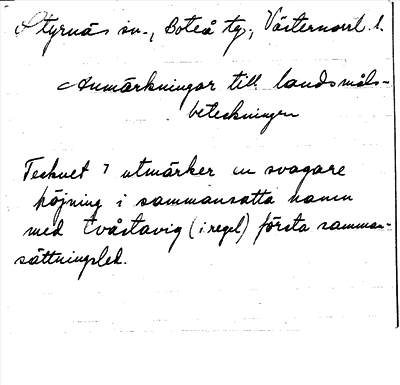 Styrnäs sn., Boteå tg., Västernorrl. l.
Anmärkningar till landsmåls-
beteckningen
Tecknet ˥ utmärker en svagare
höjning i sammansatta namn
med tvåstavig (i regel) första samman-
sättningsled.